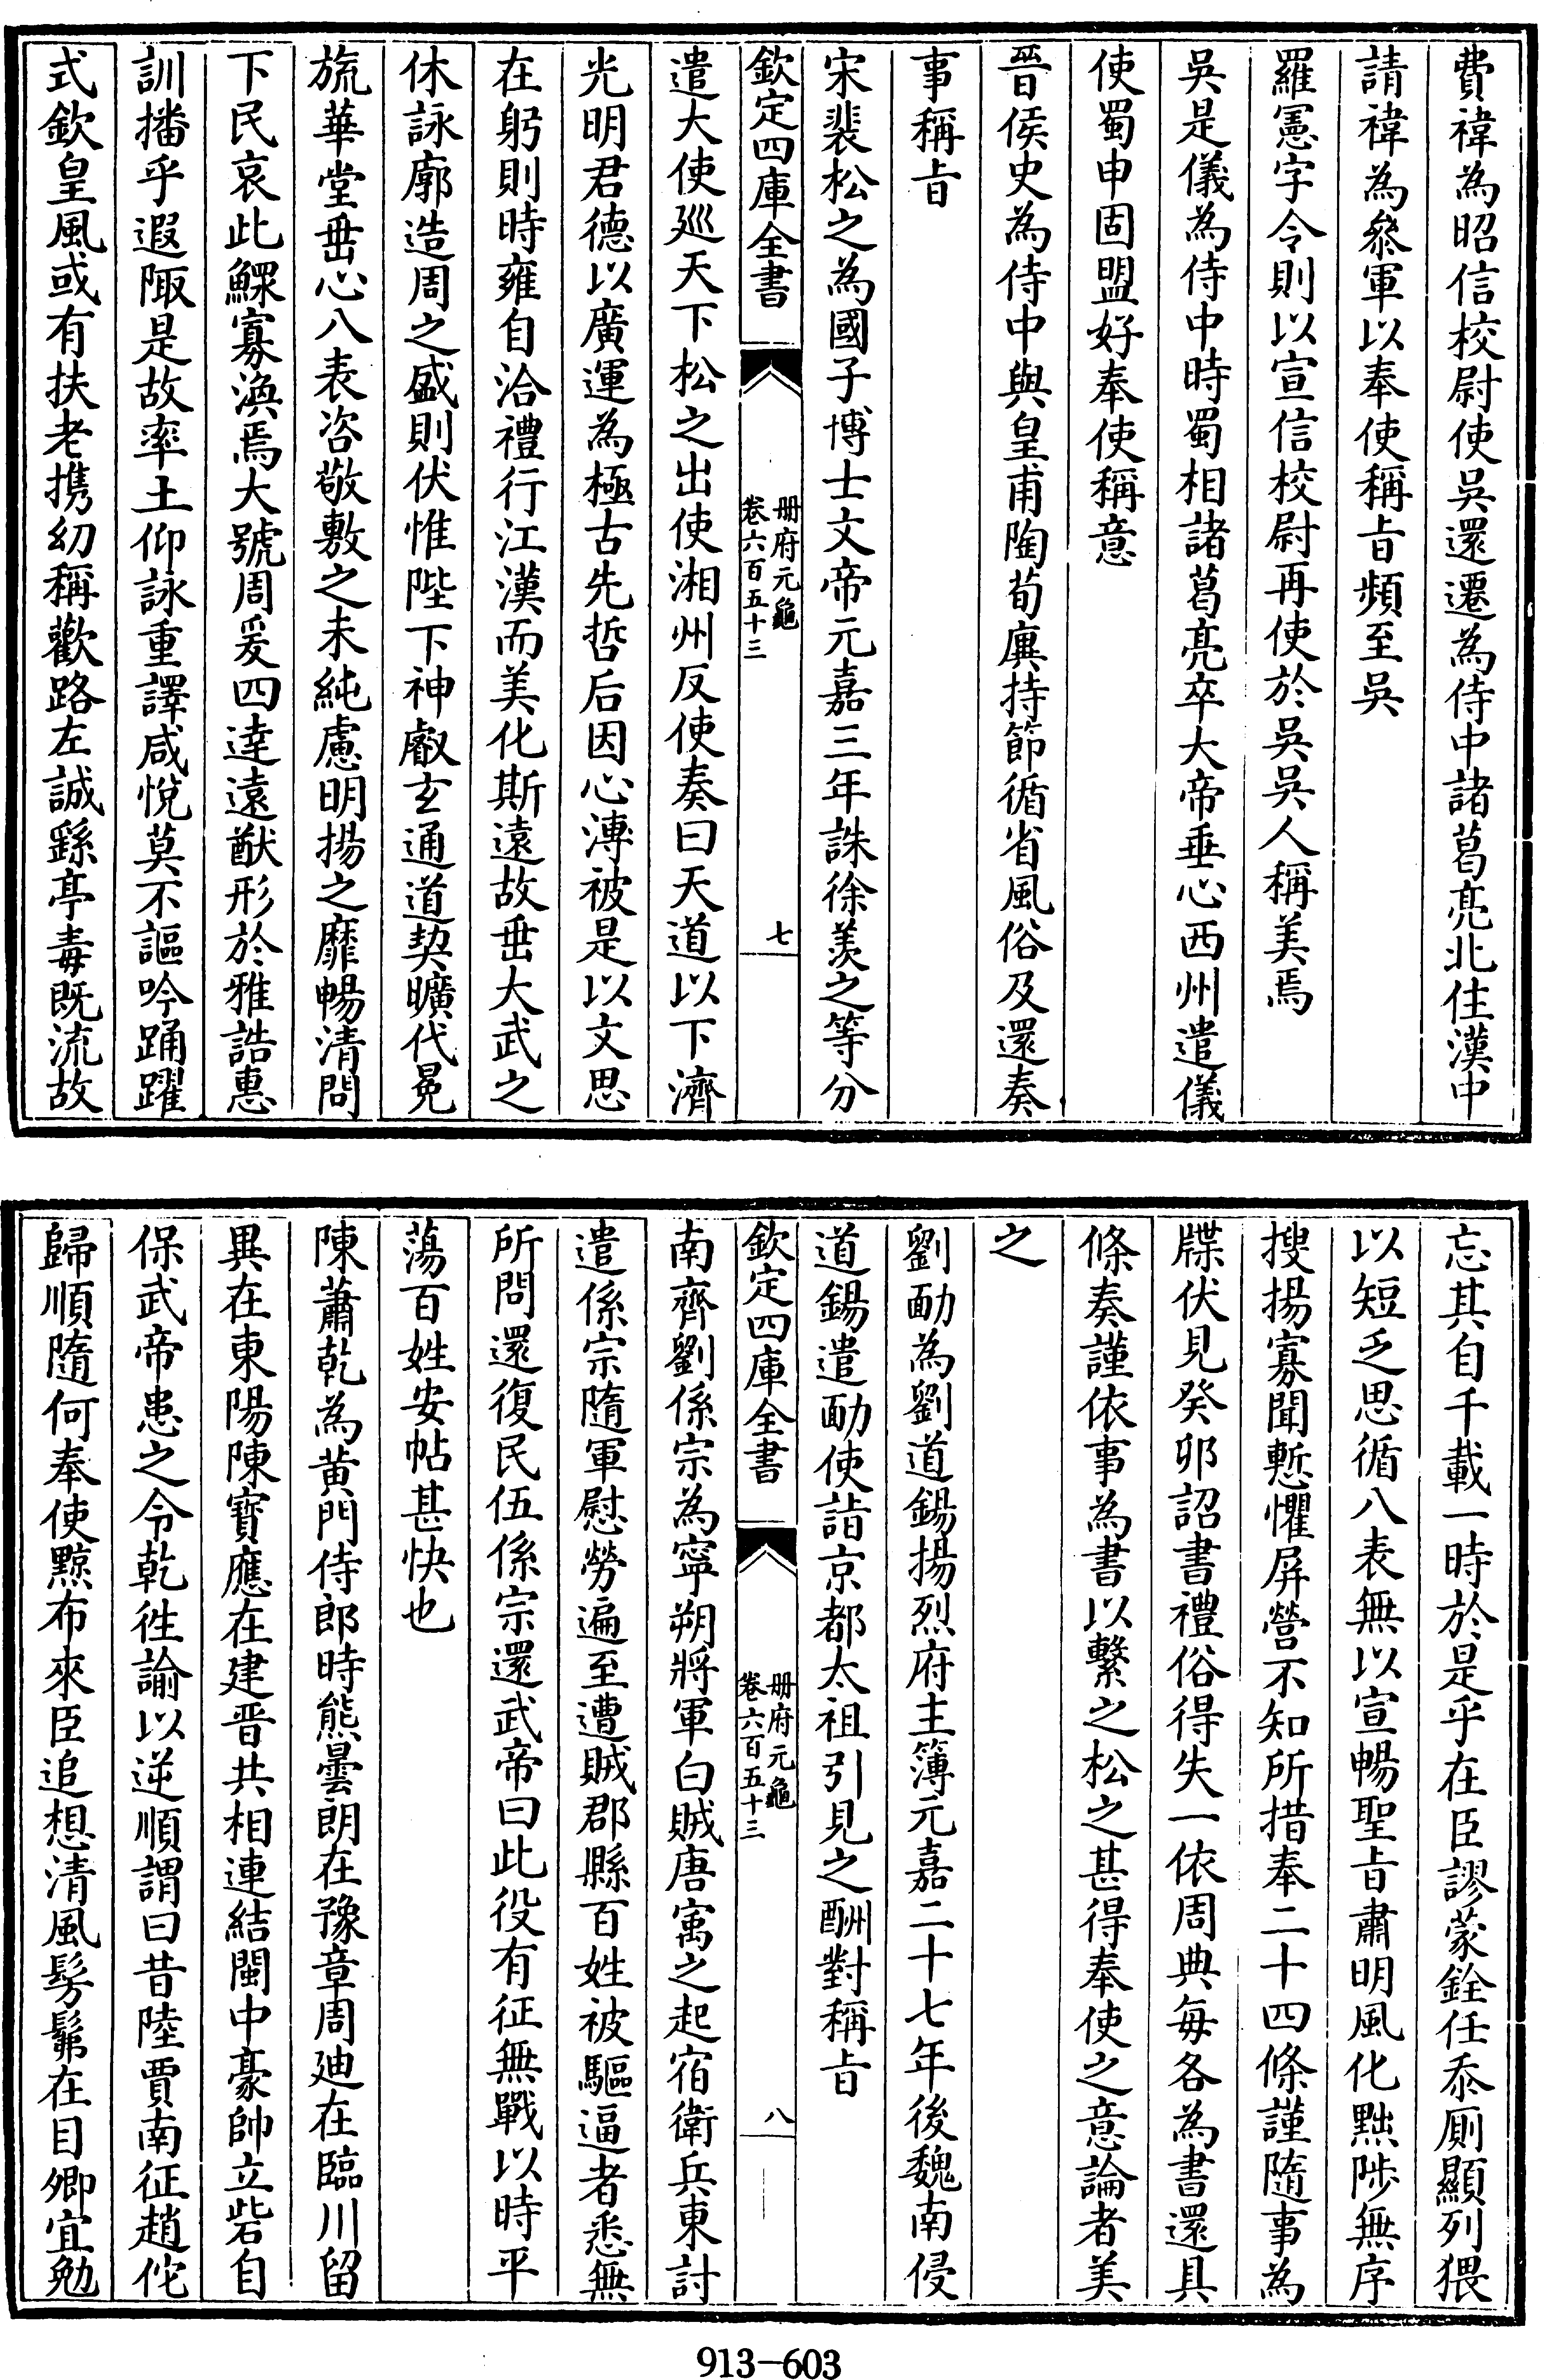 費禕為昭信校尉使吳還遷為侍中諸葛亮北住漢中
請禕為叅軍以奉使稱㫖頻至吳
羅憲字令則以宣信校尉再使於吳吳人稱美焉
吳是儀為侍中時蜀相諸葛亮卒大帝垂心西州遣儀
使蜀申固盟好奉使稱意
晉侯史為侍中與皇甫陶荀廙持節循省風俗及還奏
事稱㫖
宋裴松之為國子博士文帝元嘉三年誅徐羨之等分
欽定四庫全書
册府元龜
卷六百五十三
七
遣大使廵天下松之出使湘州反使奏曰天道以下濟
光明君德以廣運為極古先哲后因心溥被是以文思
在躬則時雍自洽禮行江漢而美化斯遠故垂大武之
休詠廓造周之盛則伏惟陛下神叡玄通道契曠代冕
旒華堂垂心八表咨敬敷之未純慮明揚之靡暢清問
下民哀此鰥寡渙焉大號周爰四達遠猷形於雅誥惠
訓播乎遐陬是故率土仰詠重譯咸悅莫不謳吟踊躍
式欽皇風或有扶老攜幼稱歡路左誠繇亭毒既流故
忘其自千載一時於是乎在臣謬蒙銓任忝厠顯列猥
以短乏思循八表無以宣暢聖㫖肅明風化黜陟無序
搜揚寡聞慙懼屏營不知所措奉二十四條謹隨事為
牒伏見癸卯詔書禮俗得失一依周典每各為書還具
條奏謹依事為書以繫之松之甚得奉使之意論者美
之
劉勔為劉道錫揚烈府主簿元嘉二十七年後魏南侵
道錫遣勔使詣京都太祖引見之酬對稱㫖
欽定四庫全書
册府元龜
卷六百五十三
八
南齊劉係宗為寧朔將軍白賊唐寓之起宿衛兵東討
遣係宗隨軍慰勞遍至遭賊郡縣百姓被驅逼者悉無
所問還復民伍係宗還武帝曰此役有征無戰以時平
蕩百姓安帖甚快也
陳蕭乾為黄門侍郎時熊曇朗在豫章周廸在臨川留
異在東陽陳寳應在建晉共相連結閩中豪帥立砦自
保武帝患之令乾徃諭以逆順謂曰昔陸賈南征趙佗
歸順隨何奉使黥布來臣追想清風髣髴在目卿宜勉
913-603